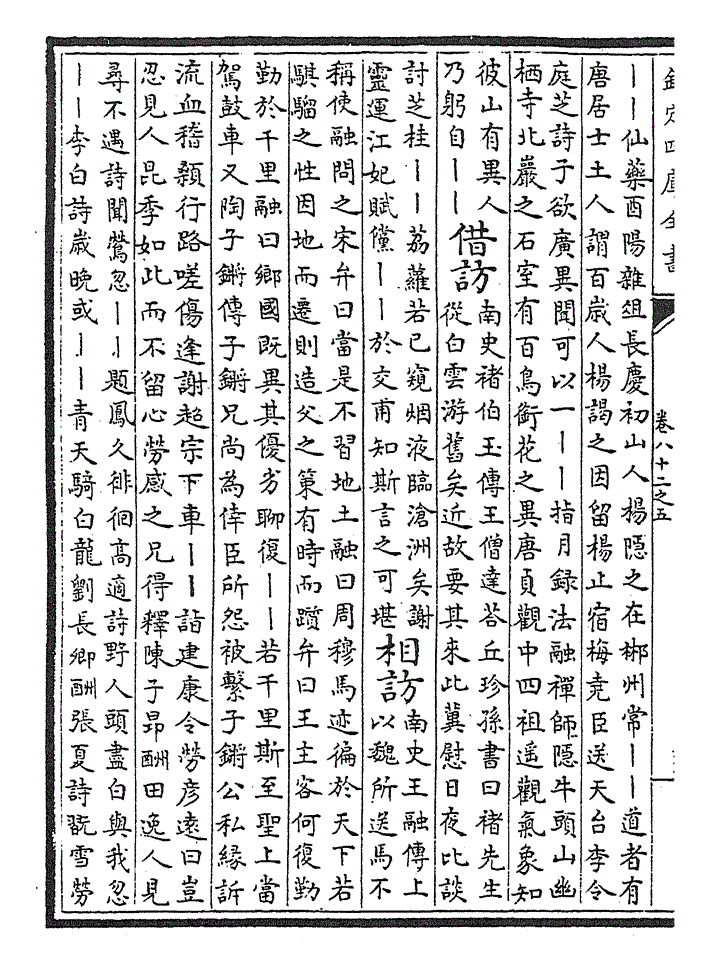 欽定四庫全書
卷八十二之五
丨丨仙藥酉陽雜俎長慶初山人楊隱之在郴州常丨丨道者有
唐居士土人謂百歲人楊謁之因留楊止宿梅堯臣送天台李令
庭芝詩子欲廣異聞可以一丨丨指月録法融禪師隠牛頭山幽
栖寺北巖之石室有百鳥銜花之異唐貞觀中四祖遥觀氣象知
彼山有異人
乃躬自丨丨
借訪
南史禇伯玉傳王僧達荅丘珍孫書曰禇先生
從白雲游舊矣近故要其來此冀慰日夜比談
討芝桂丨丨荔蘿若已窺烟液臨滄洲矣謝
靈運江妃賦儻丨丨於交甫知斯言之可堪
相訪
南史王融傳上
以魏所送馬不
稱使融問之宋弁曰當是不習地土融曰周穆馬迹徧於天下若
騏驑之性因地而遷則造父之策有時而躓弁曰王主客何復勤
勤於千里融曰鄉國既異其優劣聊復丨丨若千里斯至聖上當
駕鼓車又陶子鏘傳子鏘兄尚為倖臣所怨被繫子鏘公私緣訴
流血稽顙行路嗟傷逢謝超宗下車丨丨詣建康令勞彦遠曰豈
忍見人昆季如此而不留心勞感之兄得釋陳子昂酬田逸人見
尋不遇詩聞鶯忽丨丨題鳳久徘徊高適詩野人頭盡白與我忽
丨丨李白詩歲晚或丨丨青天騎白龍劉長卿酬張夏詩翫雪勞